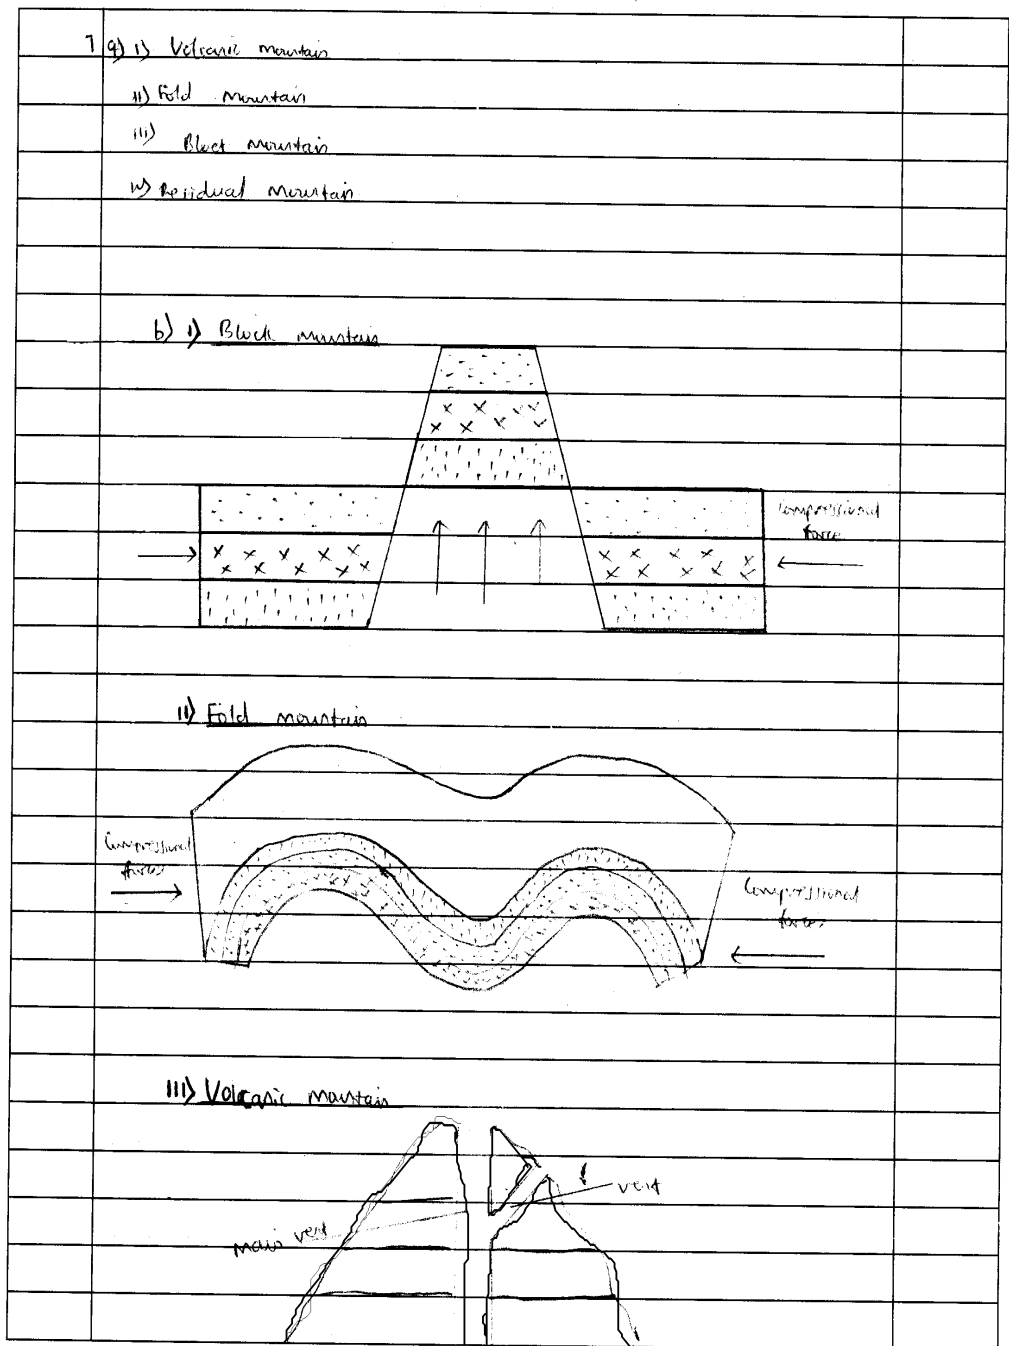 7 a) i) Volcanic mountain
ii) Fold mountain
iii) Block mountain
iv) Residual mountain
b) i) Block mountain
Compressional
force
ii) Fold mountain
Compressional
forces
Compressional
forces
iii) Volcanic mountain
vent
main vent